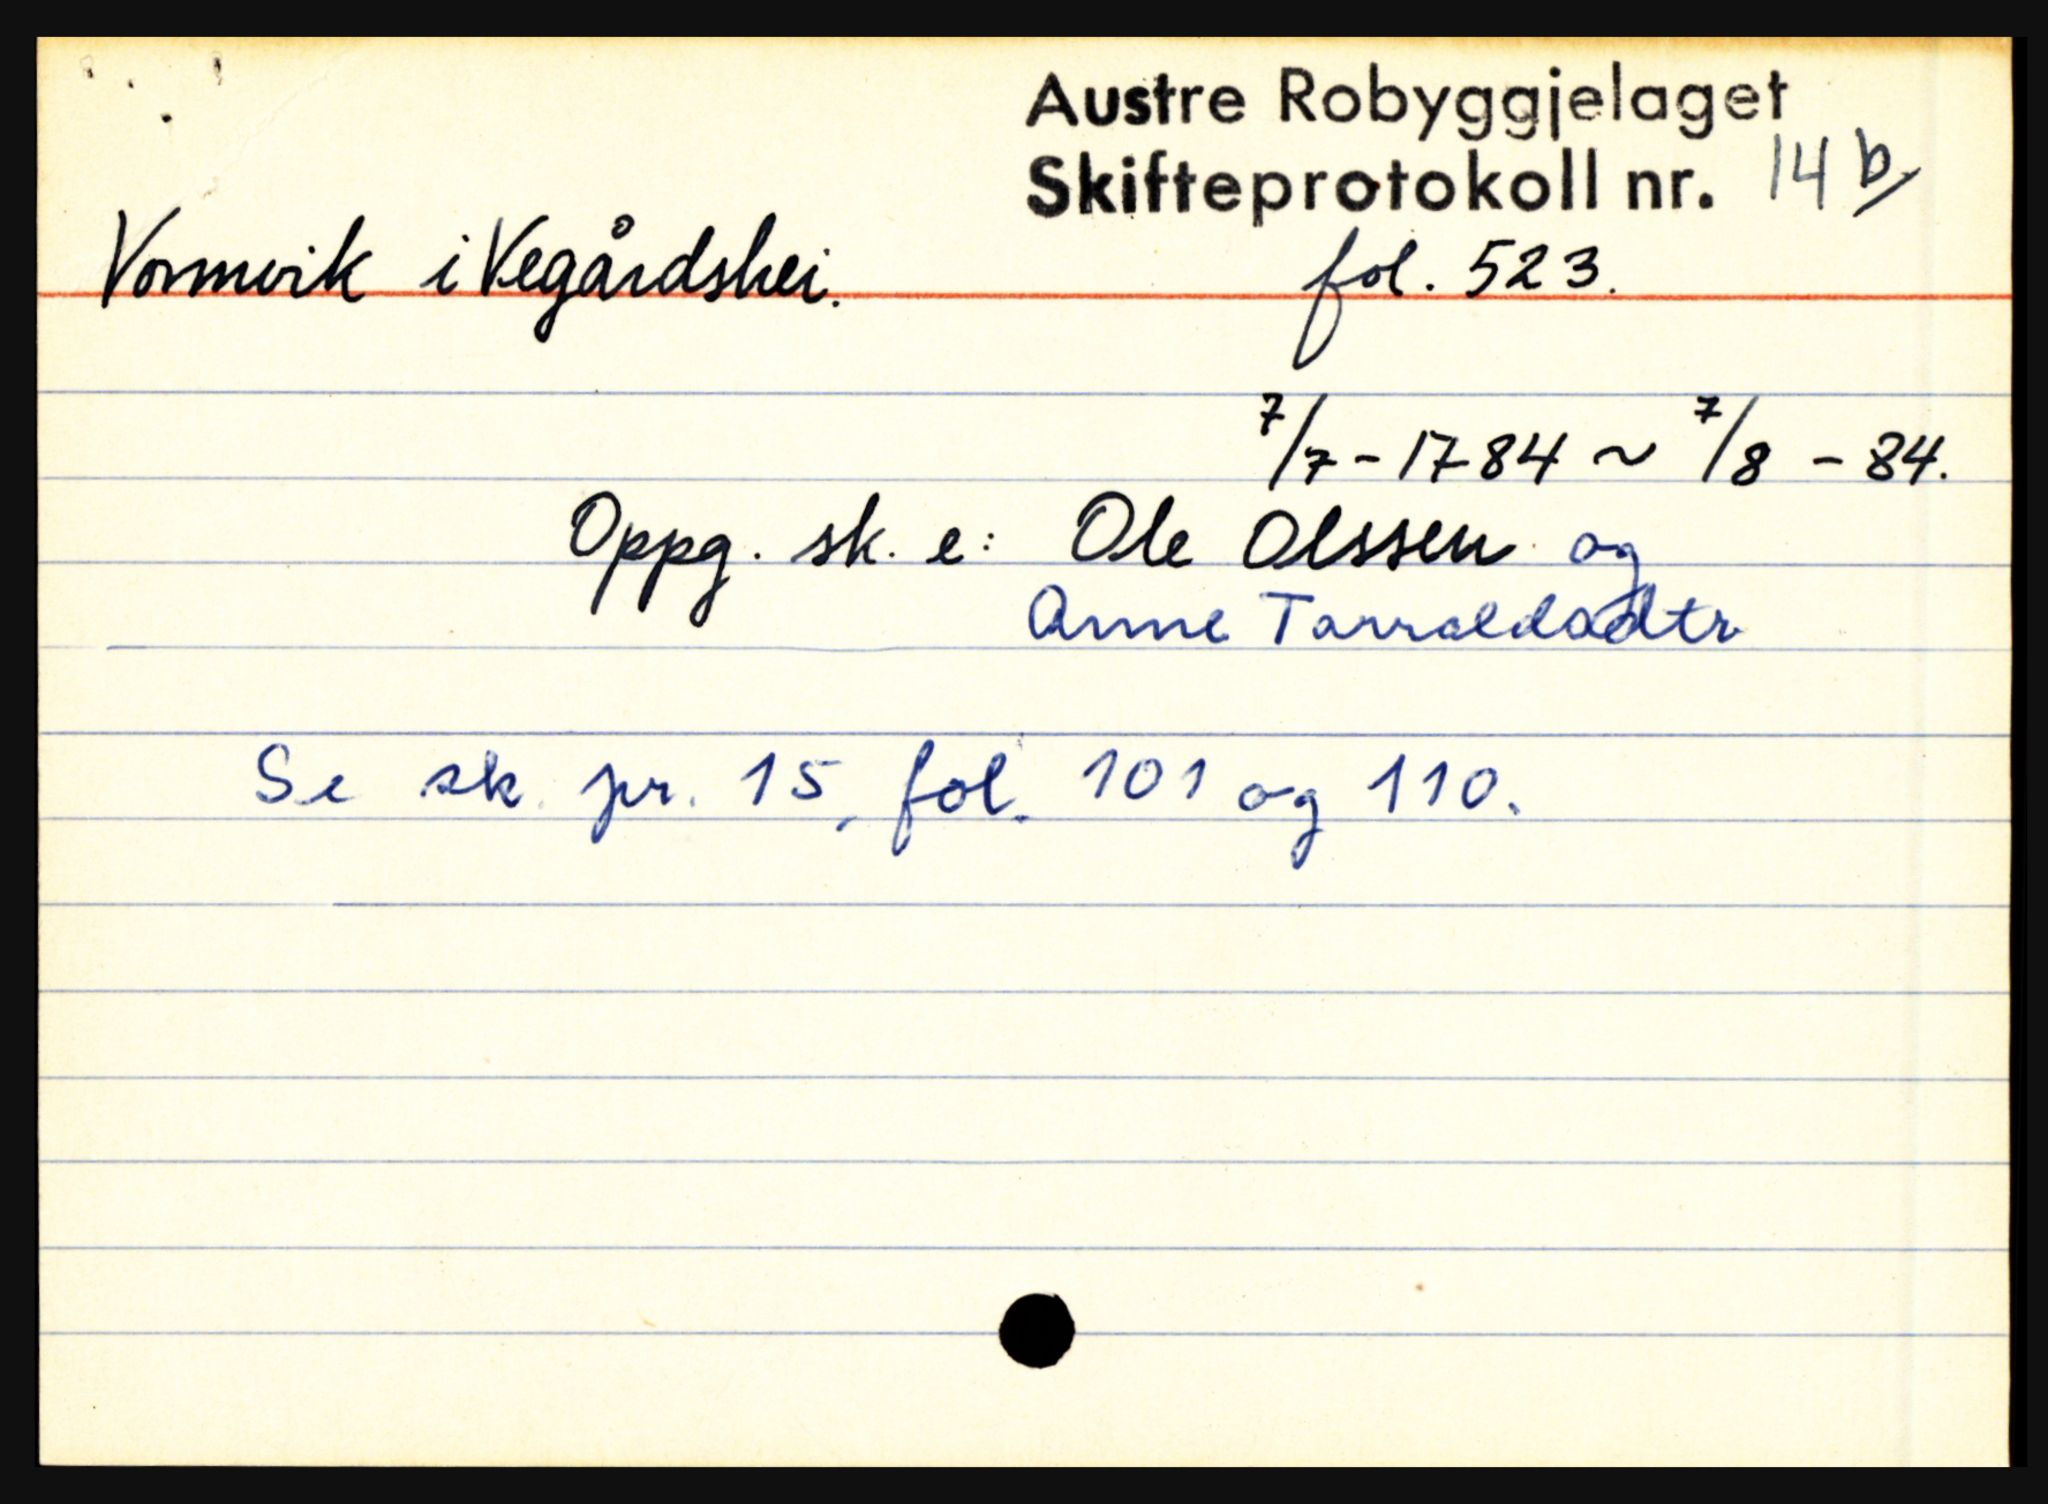 Austre Robyggjelaget
Skifteprotokoll nr. 14 b
Vormvik i Vegårdshei. fol. 523.
7/7 - 1784 ~ 7/8 - 84.
Oppg. sk. e: Ole Olssen og
Anne Tarraldsdtr
Se sk. pr. 15, fol. 101 og 110.